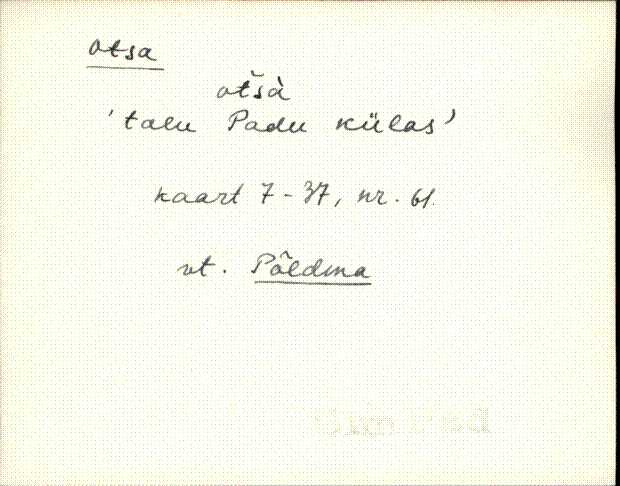 Otsa
otšà
'talu Padu külas'
kaart 7-37, nr. 61.
vt. Põldma